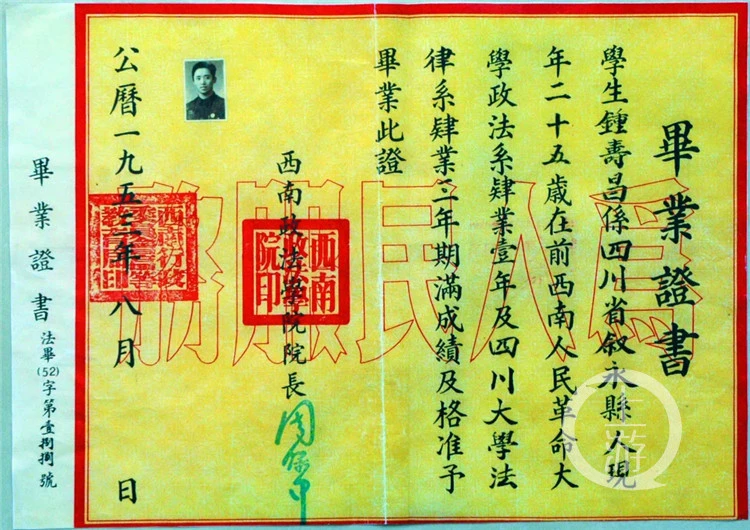 畢業證書
學生鍾壽昌係四川省敘永縣人現
年二十五歲在前西南人民革命大
學政法系肄業壹年及四川大學法
律系肄業三年期滿成績及格准予
畢業此證
西南政法學院院長
西南政法學院印
公曆一九五三年八月 日
為人民服務
畢業證書 法畢(52)字第壹捌捌號
上游